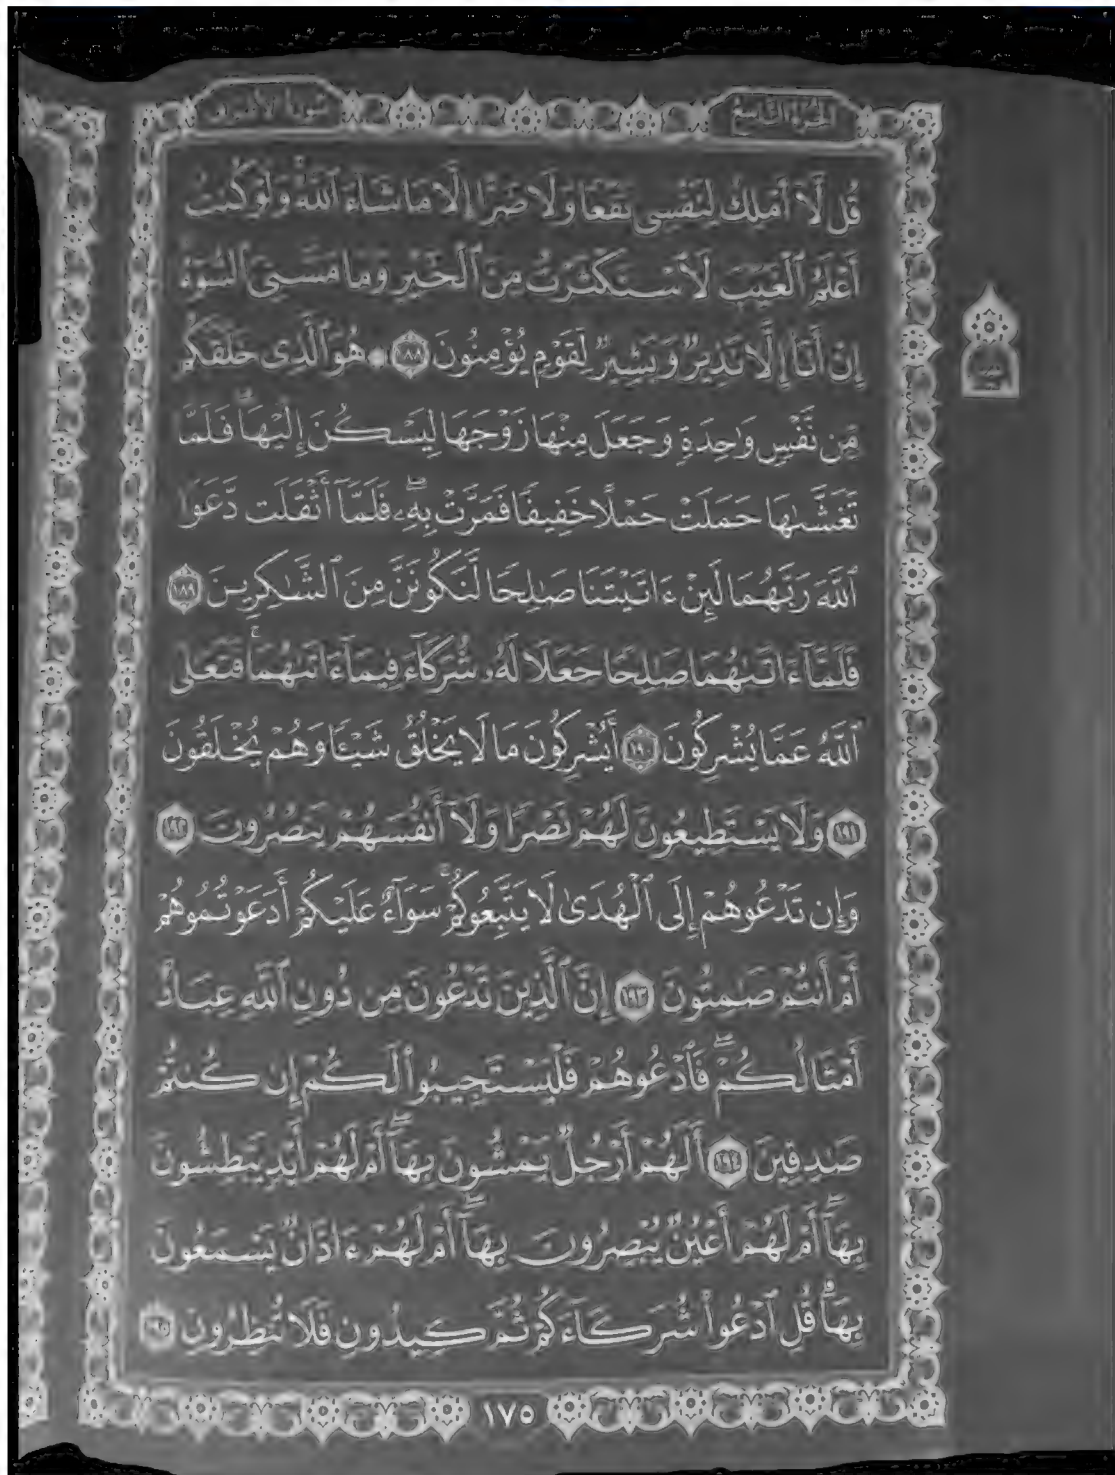 الجزء التاسع
سورة الأعراف
قُل لَّآ أَمْلِكُ لِنَفْسِى نَفْعًا وَلَا ضَرًّا إِلَّا مَا شَآءَ ٱللَّهُ ۚ وَلَوْ كُنتُ
أَعْلَمُ ٱلْغَيْبَ لَٱسْتَكْثَرْتُ مِنَ ٱلْخَيْرِ وَمَا مَسَّنِىَ ٱلسُّوٓءُ ۚ
إِنْ أَنَا۠ إِلَّا نَذِيرٌ وَبَشِيرٌ لِّقَوْمٍ يُؤْمِنُونَ ١٨٨ ۞ هُوَ ٱلَّذِى خَلَقَكُم
مِّن نَّفْسٍ وَٰحِدَةٍ وَجَعَلَ مِنْهَا زَوْجَهَا لِيَسْكُنَ إِلَيْهَا ۖ فَلَمَّا
تَغَشَّىٰهَا حَمَلَتْ حَمْلًا خَفِيفًا فَمَرَّتْ بِهِۦ ۖ فَلَمَّآ أَثْقَلَت دَّعَوَا
ٱللَّهَ رَبَّهُمَا لَئِنْ ءَاتَيْتَنَا صَٰلِحًا لَّنَكُونَنَّ مِنَ ٱلشَّٰكِرِينَ ١٨٩
فَلَمَّآ ءَاتَىٰهُمَا صَٰلِحًا جَعَلَا لَهُۥ شُرَكَآءَ فِيمَآ ءَاتَىٰهُمَا ۚ فَتَعَٰلَى
ٱللَّهُ عَمَّا يُشْرِكُونَ ١٩٠ أَيُشْرِكُونَ مَا لَا يَخْلُقُ شَيْـًٔا وَهُمْ يُخْلَقُونَ
١٩١ وَلَا يَسْتَطِيعُونَ لَهُمْ نَصْرًا وَلَآ أَنفُسَهُمْ يَنصُرُونَ ١٩٢
وَإِن تَدْعُوهُمْ إِلَى ٱلْهُدَىٰ لَا يَتَّبِعُوكُمْ ۚ سَوَآءٌ عَلَيْكُمْ أَدَعَوْتُمُوهُمْ
أَمْ أَنتُمْ صَٰمِتُونَ ١٩٣ إِنَّ ٱلَّذِينَ تَدْعُونَ مِن دُونِ ٱللَّهِ عِبَادٌ
أَمْثَالُكُمْ ۖ فَٱدْعُوهُمْ فَلْيَسْتَجِيبُوا۟ لَكُمْ إِن كُنتُمْ
صَٰدِقِينَ ١٩٤ أَلَهُمْ أَرْجُلٌ يَمْشُونَ بِهَآ ۖ أَمْ لَهُمْ أَيْدٍ يَبْطِشُونَ
بِهَآ ۖ أَمْ لَهُمْ أَعْيُنٌ يُبْصِرُونَ بِهَآ ۖ أَمْ لَهُمْ ءَاذَانٌ يَسْمَعُونَ
بِهَا ۗ قُلِ ٱدْعُوا۟ شُرَكَآءَكُمْ ثُمَّ كِيدُونِ فَلَا تُنظِرُونِ ١٩٥
١٧٥